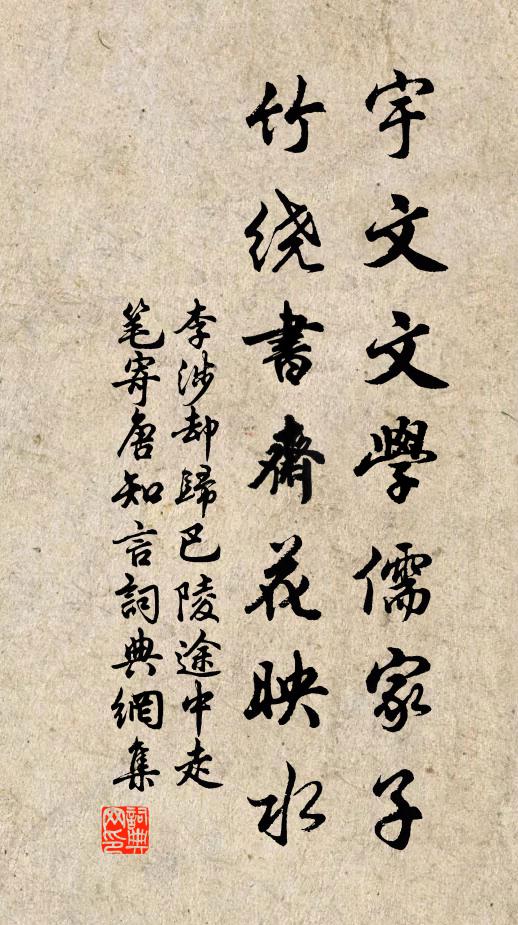 宇文文學儒家子
竹绕書齋花映水
李涉却歸巴陵途中走
笔寄唐知言詞典網集
詞典
网印